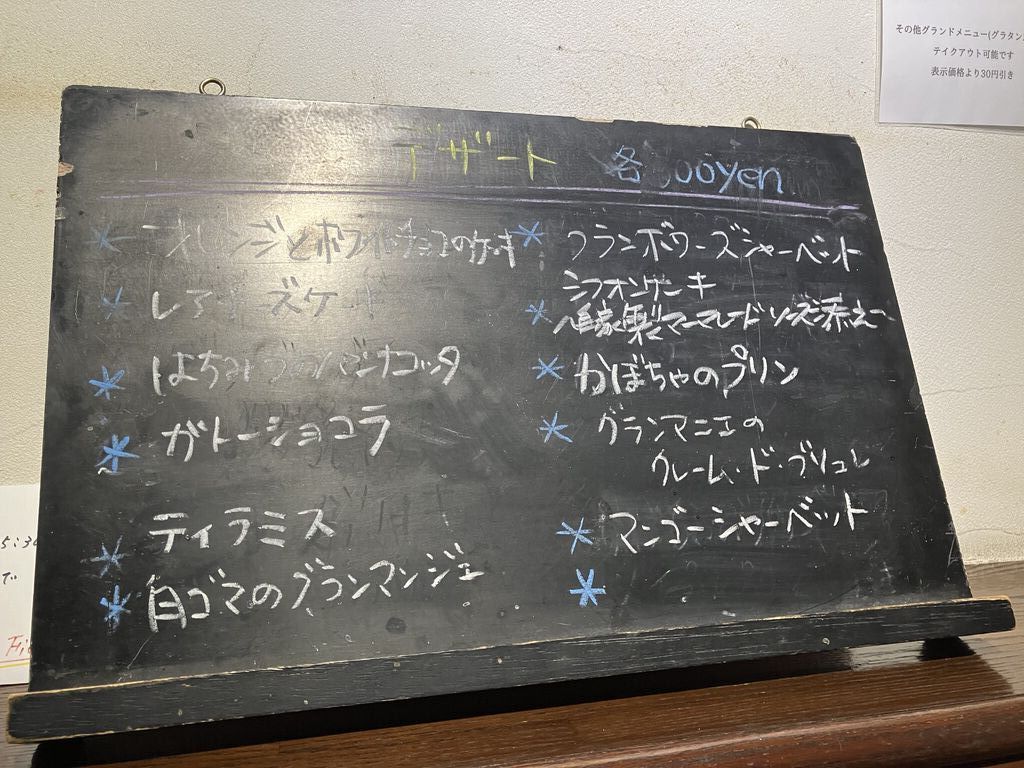 その他グランドメニュー(グラタン
テイクアウト可能です
表示価格より30円引き
デザート 各 500yen
* オレンジとホワイトチョコのケーキ
* レアチーズケーキ
* はちみつのパンナコッタ
* ガトーショコラ
* ティラミス
* 白ゴマのブランマンジェ
* フランボワーズシャーベット
シフォンケーキ
* 自家製マーマレードソース添え
* かぼちゃのプリン
* グランマニエの
クレーム・ド・ブリュレ
* マンゴーシャーベット
*
5:30
で